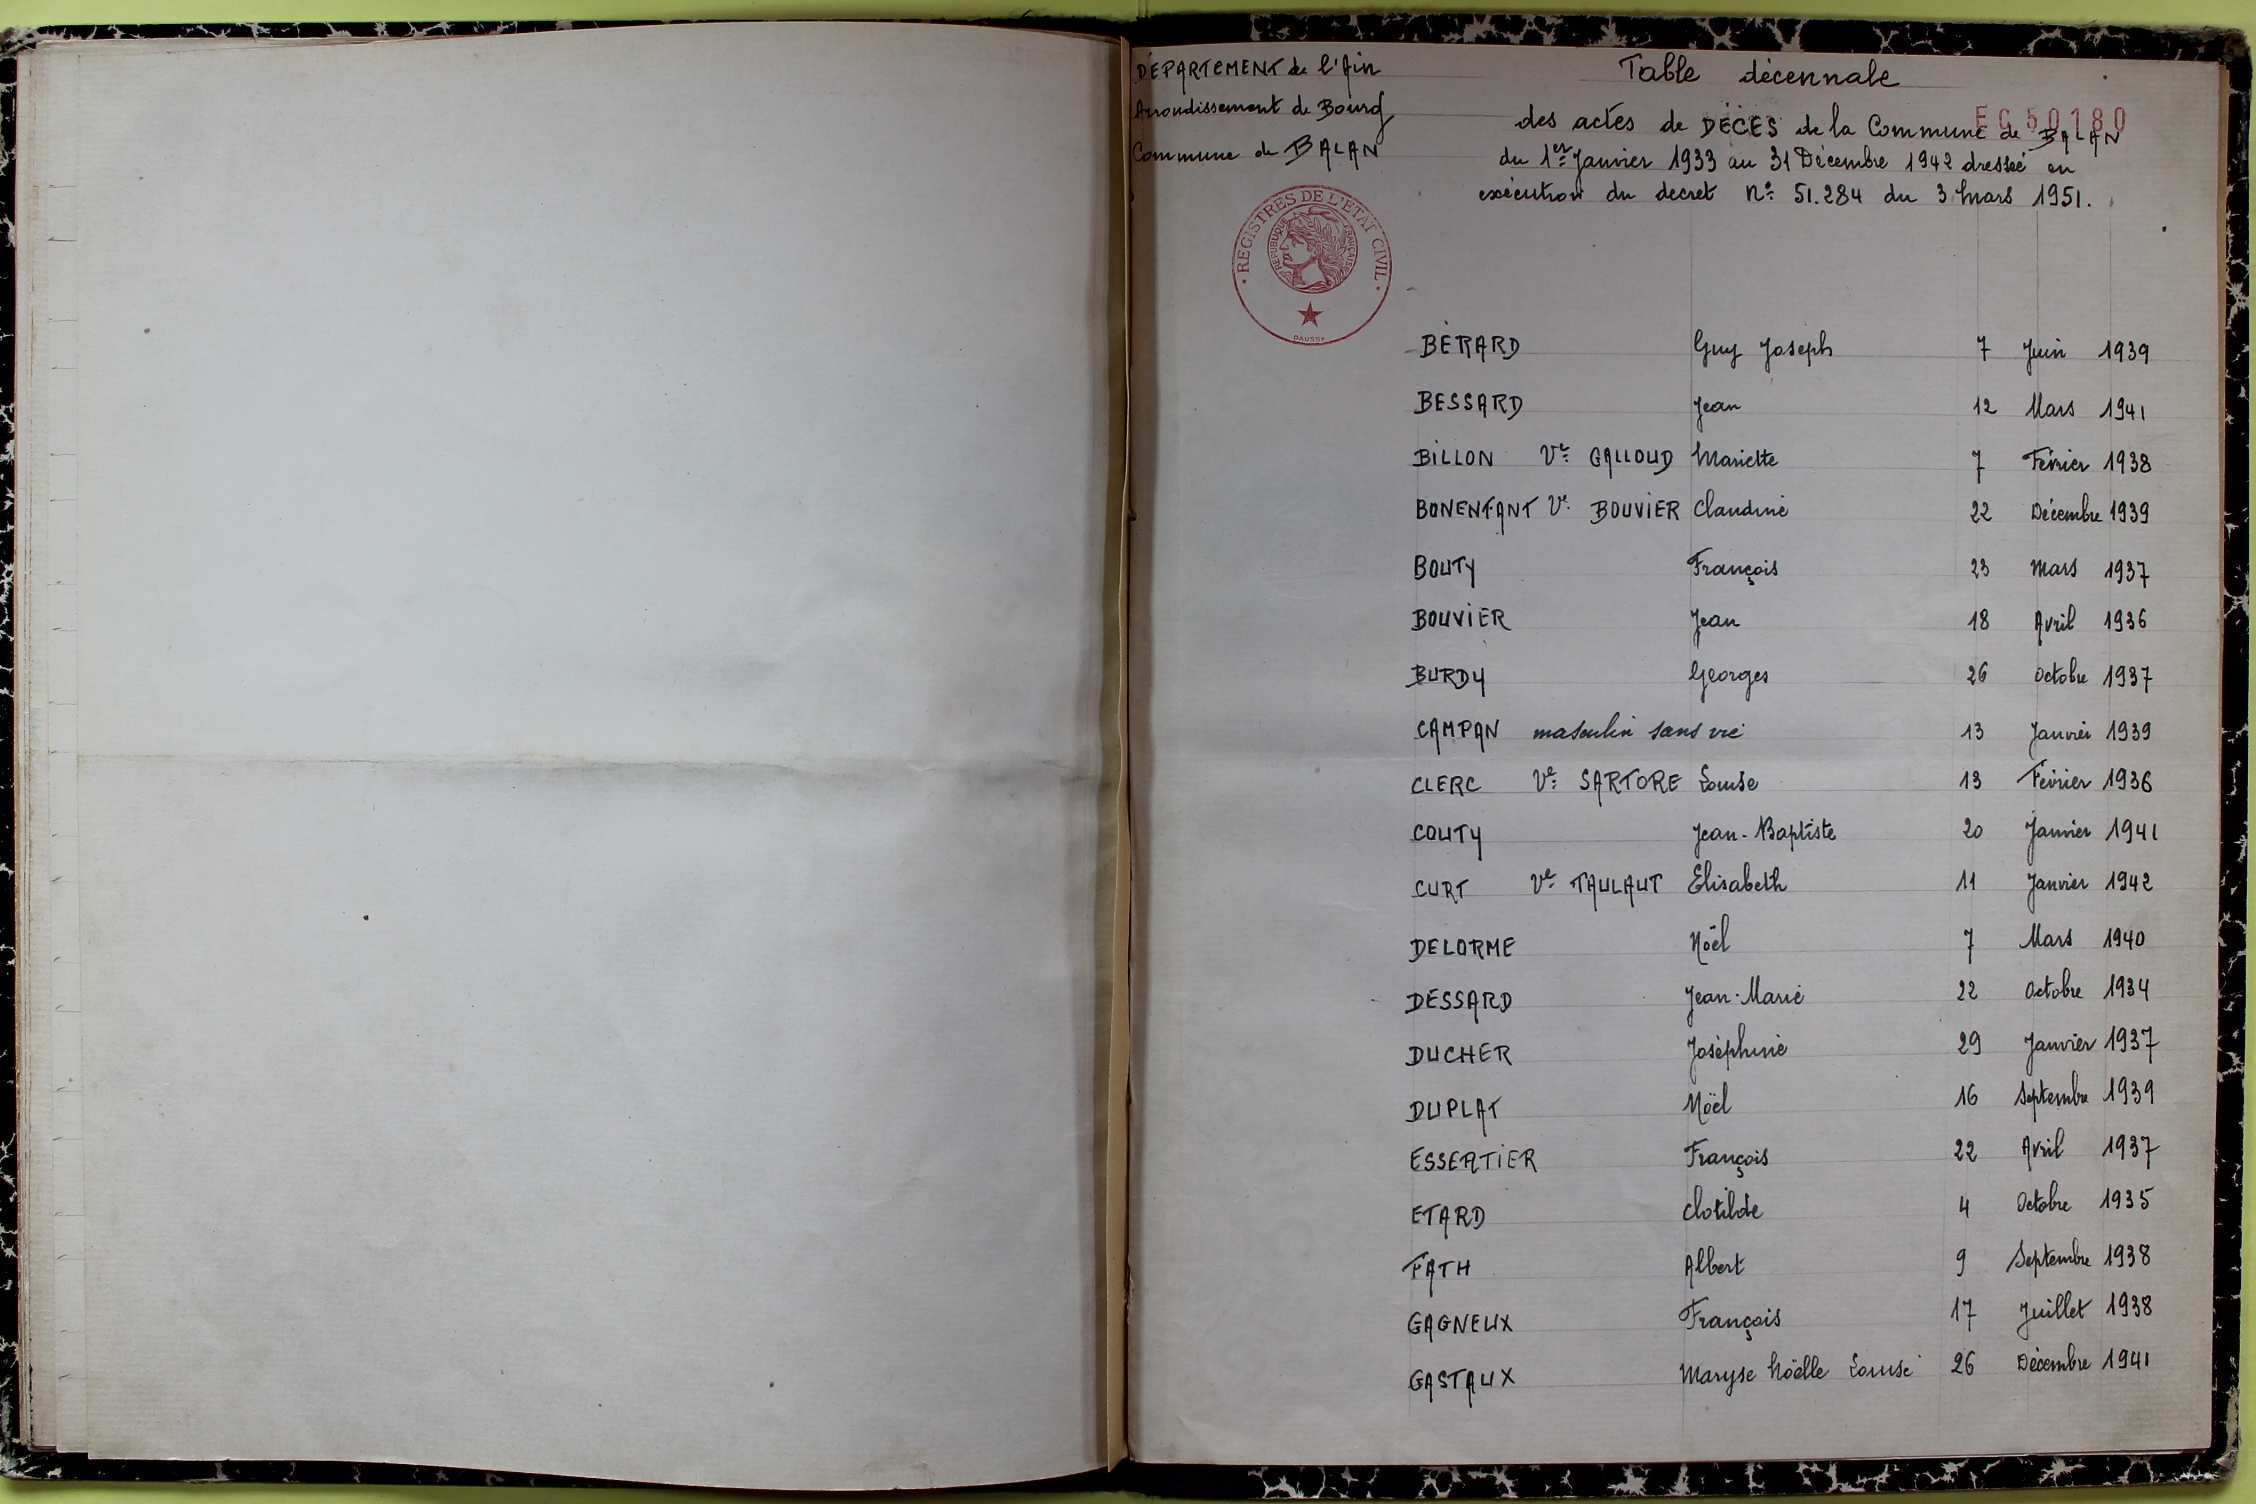 DÉPARTEMENT de l'Ain
Arrondissement de Bourg
Commune de BALAN
Table décennale
EC 50180
des actes de DÉCÈS de la Commune de BALAN
du 1er Janvier 1933 au 31 Décembre 1942 dressée en
exécution du decret N° 51.284 du 3 Mars 1951.
REGISTRES DE L'ETAT CIVIL
REPUBLIQUE FRANÇAISE
DAUSSY
BÉRARD Guy Joseph 7 Juin 1939
BESSARD Jean 12 Mars 1941
BILLON Ve GALLOUD Mariette 7 Février 1938
BONENFANT Ve BOUVIER Claudine 22 Décembre 1939
BOUTY François 23 Mars 1937
BOUVIER Jean 18 Avril 1936
BURDY Georges 26 Octobre 1937
CAMPAN masculin sans vie 13 Janvier 1939
CLERC Ve SARTORE Louise 13 Février 1936
COUTY Jean-Baptiste 20 Janvier 1941
CURT Ve TAULAUT Elisabeth 11 Janvier 1942
DELORME Noël 7 Mars 1940
DESSARD Jean-Marie 22 Octobre 1934
DUCHER Joséphine 29 Janvier 1937
DUPLAT Noël 16 Septembre 1939
ESSERTIER François 22 Avril 1937
ETARD Clotilde 4 Octobre 1935
FATH Albert 9 Septembre 1938
GAGNEUX François 17 Juillet 1938
GASTAUX Maryse Noëlle Louise 26 Décembre 1941